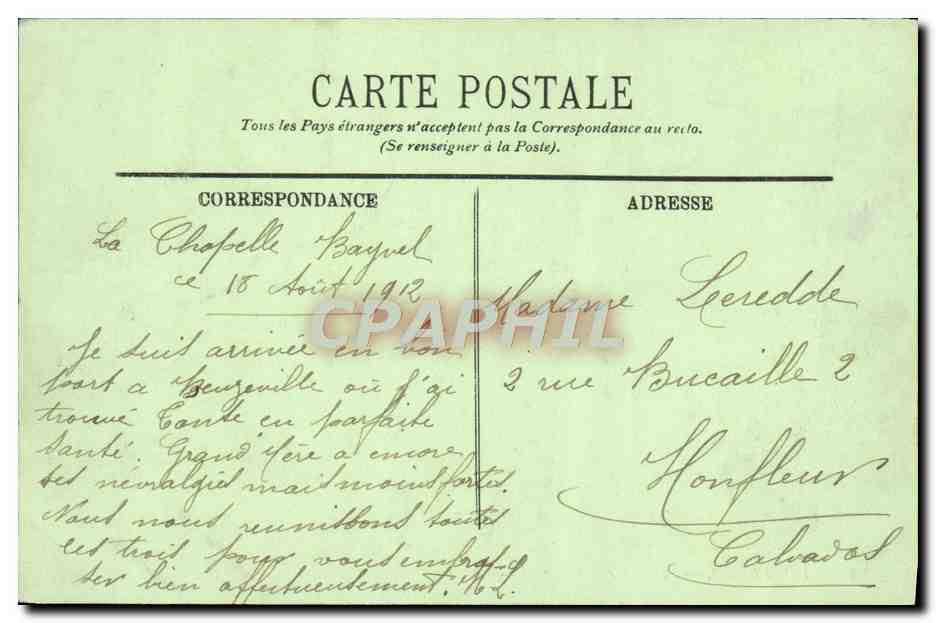 CARTE POSTALE
Tous les Pays étrangers n'acceptent pas la Correspondance au recto.
(Se renseigner à la Poste).
CORRESPONDANCE
La Chapelle Bayvel
ce 18 Août 1912
Je suis arrivée en bon
port a Beuzeville où j'ai
trouvé Tante en parfaite
santé. Grand'Mère a encore
ses névralgies mais moins fortes.
Nous nous reunissons toutes
les trois pour vous embras-
ser bien affectueusement. M-L.
ADRESSE
Madame Leredde
2 rue Bucaille 2
Honfleur
Calvados
CPAPHIL